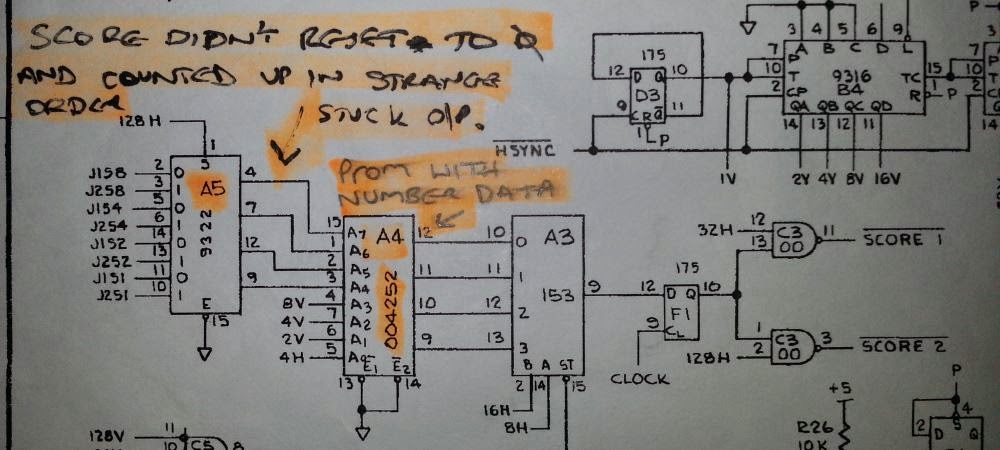 SCORE DIDN'T RESET TO 0
AND COUNTED UP IN STRANGE
ORDER
STUCK O/P.
PROM WITH
NUMBER DATA
128H
1
S
J1S8 2 0
J2S8 3 1
J1S4 5 0
J2S4 6 1
J1S2 14 0
J2S2 13 1
J1S1 11 0
J2S1 10 1
A5
9322
E
15
4
7
12
9
15 A7
1 A6
2 A5
3 A4
8V 4 A3
4V 7 A2
2V 6 A1
4H 5 A0
A4
004252
E1 E2
13 14
12 10 0
11 11 1
10 12 2
9 13 3
A3
153
B A ST
2 14 15
16H
8H
9
12
175
D Q
F1
9 CL
10
CLOCK
32H 12
13
C3
00
11
SCORE 1
1
128H 2
C3
00
3
SCORE 2
HSYNC
175
12 D Q 10
D3
9 CR Q 11
1 P
1V
3 4 5 6 9
A B C D L
7 P
10 T
2 CP
9316
B4
TC 15
R 1 P
QA QB QC QD
14 13 12 11
2V 4V 8V 16V
P
7
10
2
3
P
T
+5
R26
10K
P
4
S
2 D Q
128V 11
10 C5 8